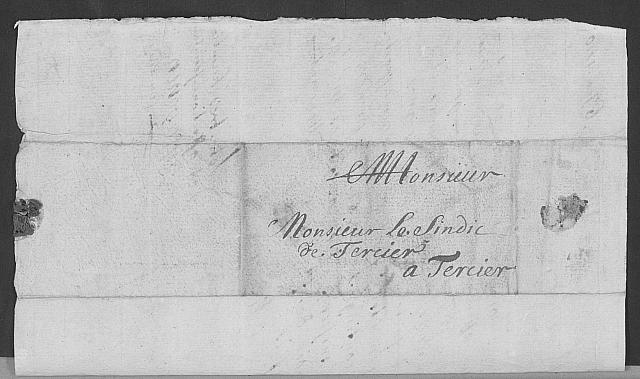 Monsieur
Monsieur Le Sindic
de Tercier
a Tercier